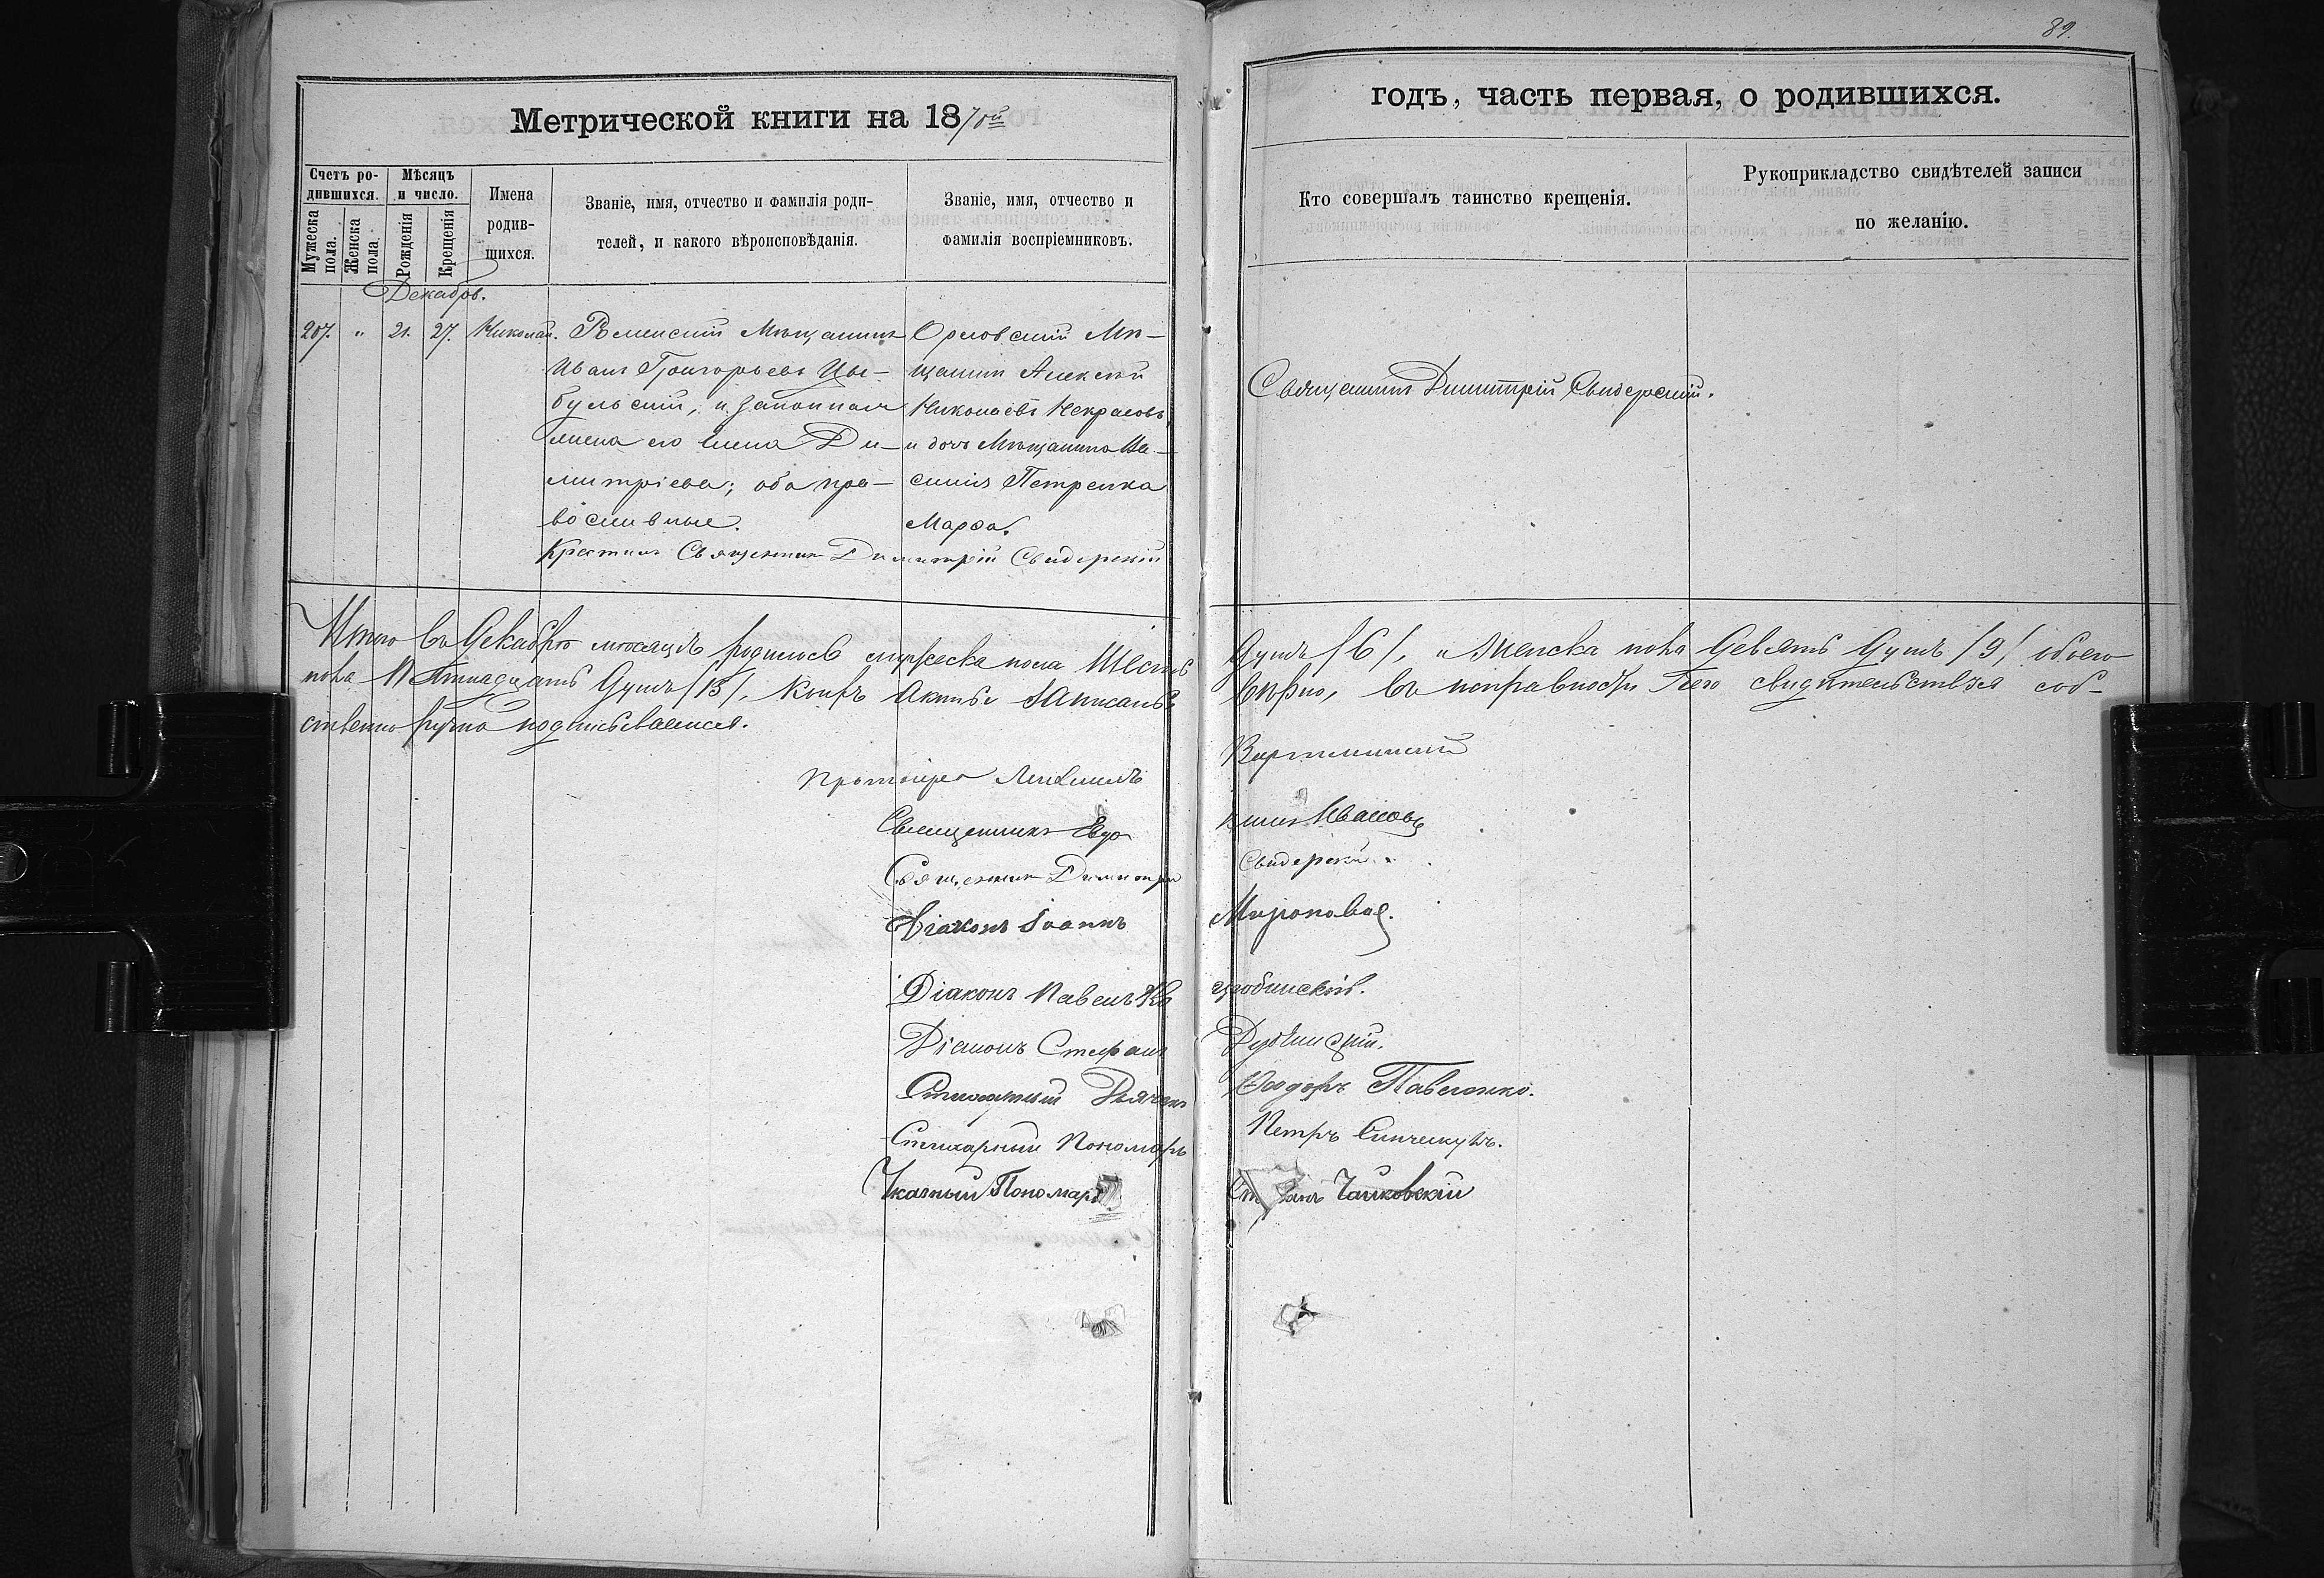 89.
Метрической книги на 1870й
годъ, часть первая, о родившихся.
Счетъ ро-
дившихся.
Мужеска пола.
Женска пола.
Мѣсяцъ
и число.
Рожденія
Крещенія
Имена
родив-
шихся.
Званіе, имя, отчество и фамилія роди-
телей, и какого вѣроисповѣданія.
Званіе, имя, отчество и
фамилія воспріемниковъ.
Кто совершалъ таинство крещенія.
Рукоприкладство свидѣтелей записи
по желанію.
Декабрь.
207. " 21. 27. Николай.
Роменскій Мѣщанинъ
Иванъ Григорьевъ Цы-
бульскій, и законная
жена его Ди-
митріева; оба пра-
вославные.
Орловскій Мѣ-
щанинъ Алексѣй
Николаевъ Некрасовъ,
и дочь Мѣщанина
Петренка
Марѳа.
Крестилъ Священникъ Димитрій Свидерскій
Священникъ Димитрій Свидерскій.
Итого въ Декабрѣ мѣсяцѣ родилось мужеска пола Шесть
Душъ /6/, Женска пола Девять Душъ /9/ обоего
пола Пятнадцать Душъ /15/. Актъ записанъ
вѣрно, въ исправности чего свидѣтельствуя соб-
ственноручно подписываемся.
Протоіерей
Священникъ Иванов
Священникъ Димитрій Свидерскій.
Діаконъ Іоаннъ
Діаконъ Павелъ
Діаконъ Стефанъ Дубинскій.
Стихарный Дьячекъ Ѳеодоръ Павленко.
Стихарный Пономарь Петръ
Указный Пономарь Чайковскій